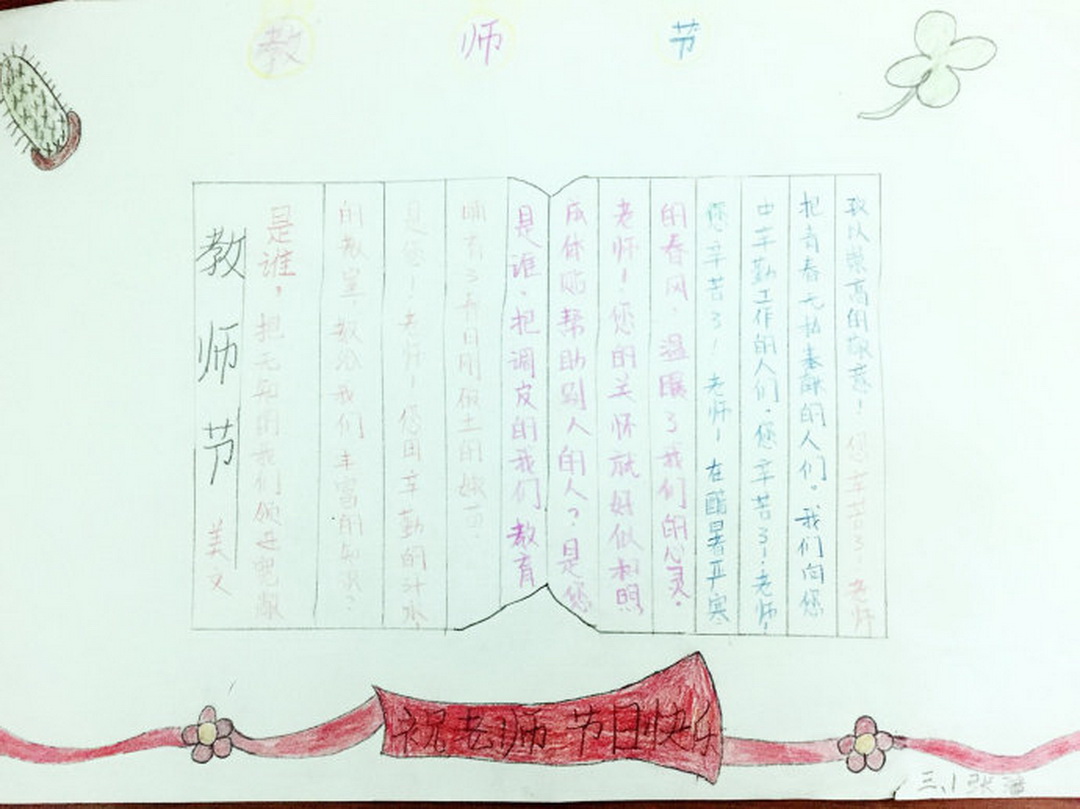 教 师 节
教师节 美文
是谁，把无知的我们领进宽敞
的教室，教给我们丰富的知识？
是您！老师！您用辛勤的汗水，
哺育了春日刚破土的嫩
是谁，把调皮的我们教育
成体贴帮助别人的人？是您
老师！您的关怀就好似和照
的春风，温暖了我们的心灵。
您辛苦了！老师！在酷暑严寒
中辛勤工作的人们，您辛苦了！老师！
把青春无私奉献的人们。我们向您
致以崇高的敬意！您辛苦了，老师
祝老师 节日快乐
三、1 张